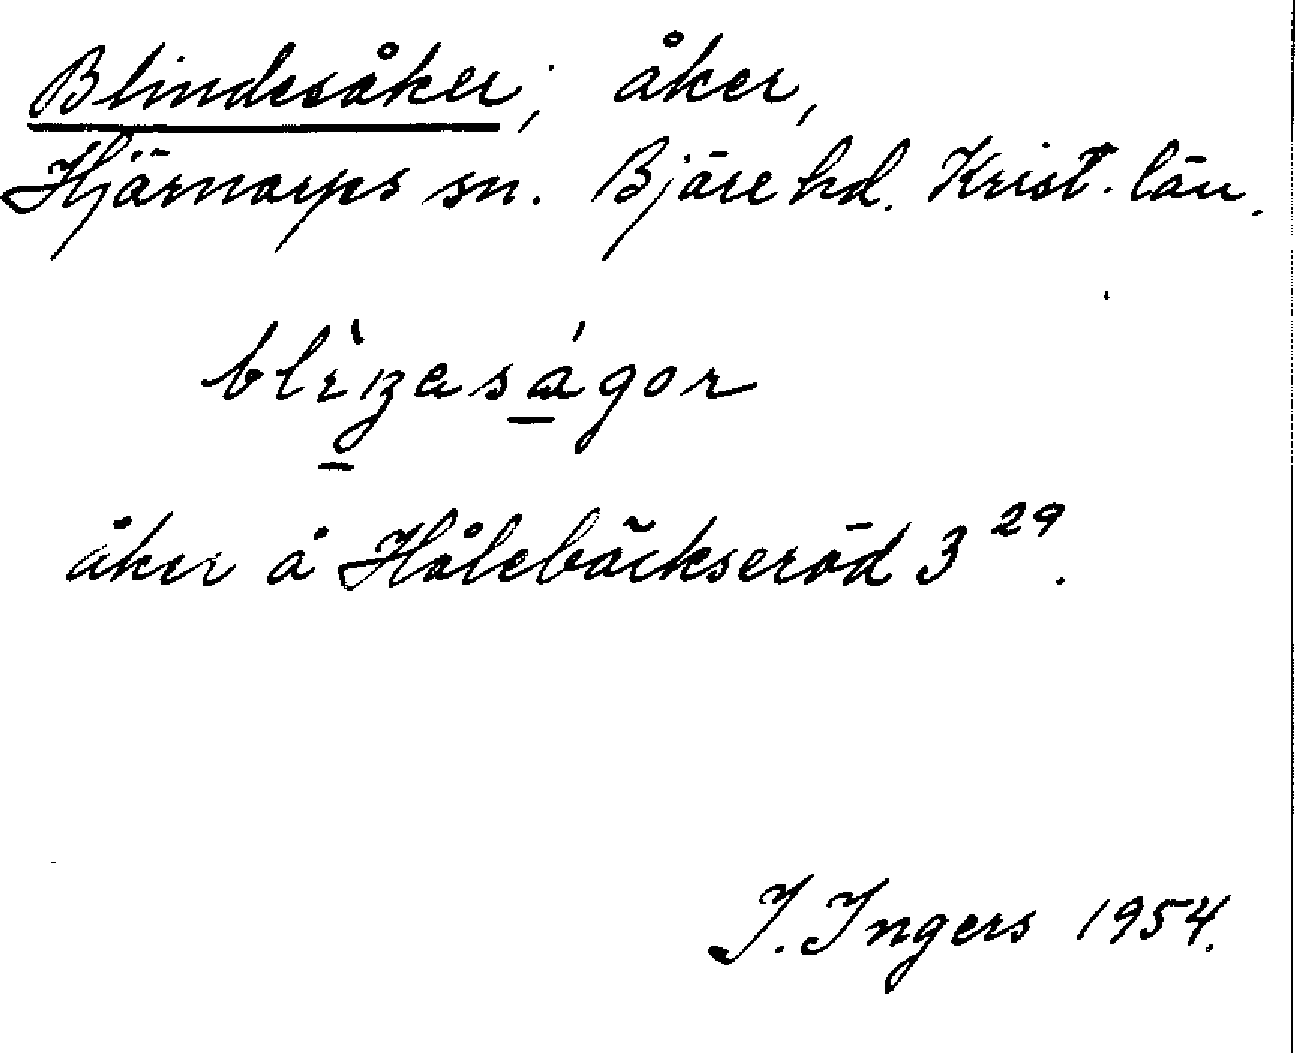 Blindesåker, åker,
Hjärnarps sn. Bjäre hd. Krist. län.
åker å Hålebäckseröd 3 29.
I. Ingers 1954.